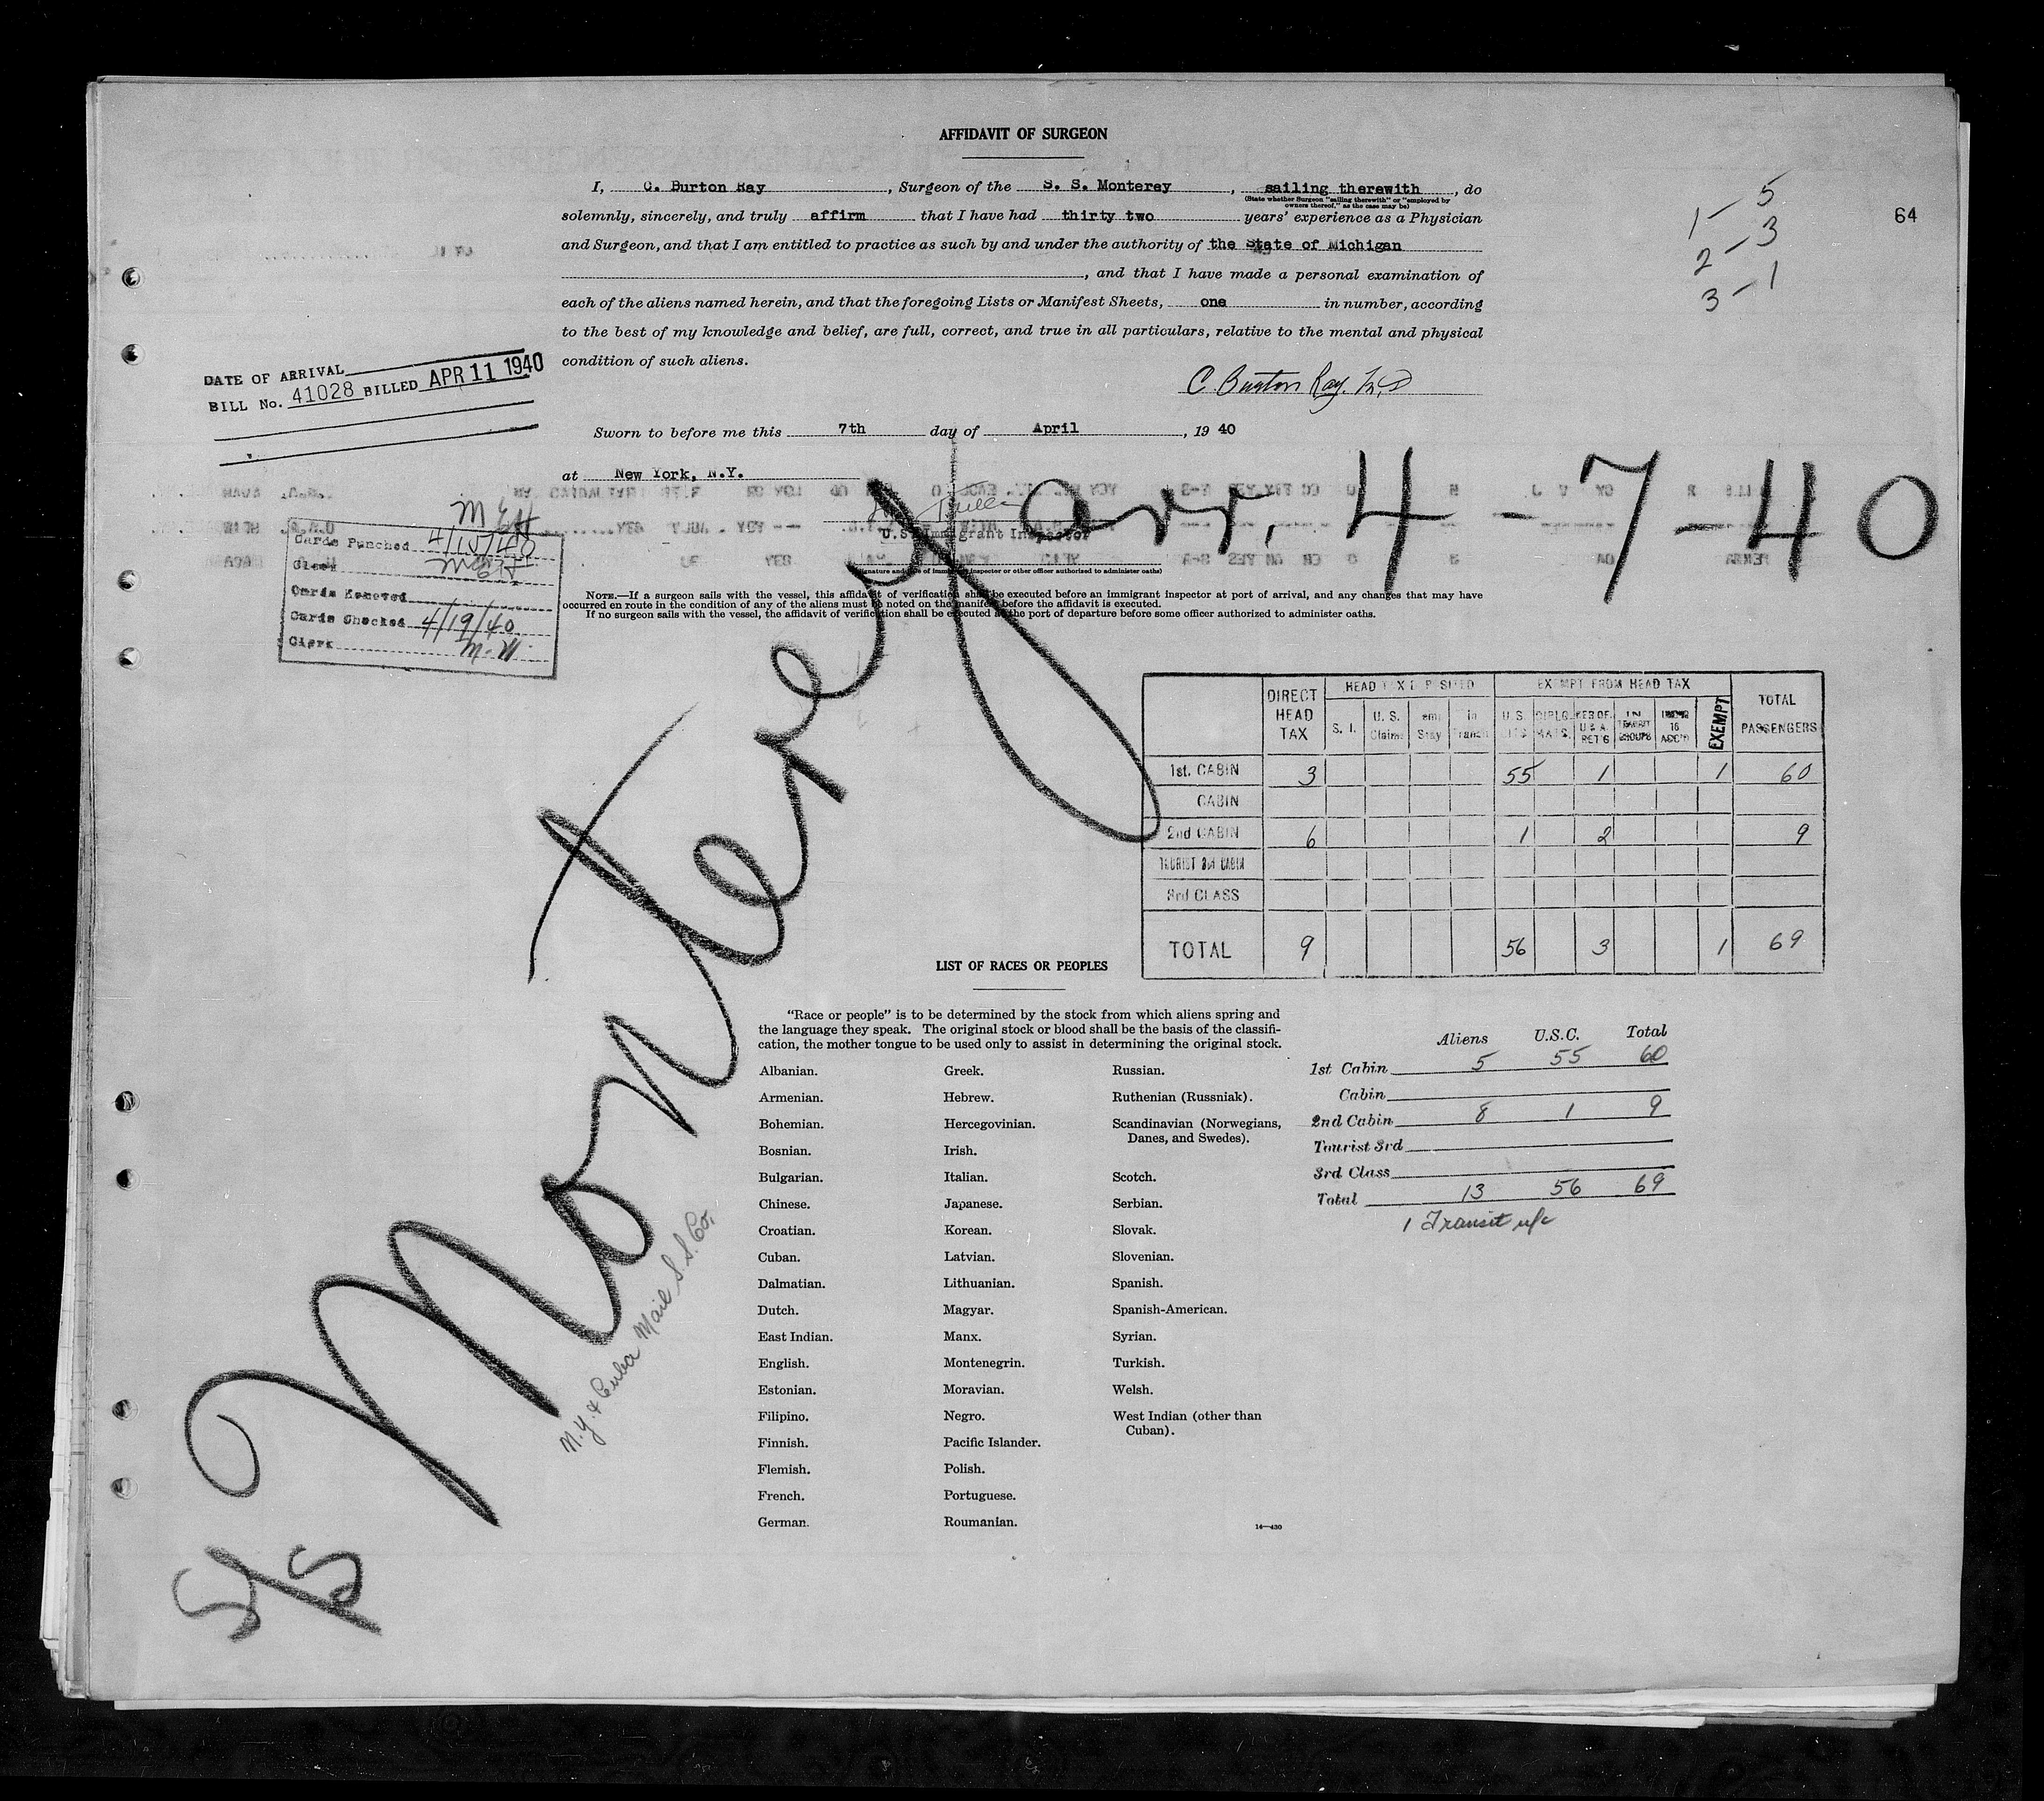 AFFIDAVIT OF SURGEON
64
1 - 5
2 - 3
3 - 1
I, C. Burton Ray, Surgeon of the S. S. Monterey, sailing therewith, do
(State whether Surgeon "sailing therewith" or "employed by
owners thereof," as the case may be)
solemnly, sincerely, and truly affirm that I have had thirty two years' experience as a Physician
and Surgeon, and that I am entitled to practice as such by and under the authority of the State of Michigan
, and that I have made a personal examination of
each of the aliens named herein, and that the foregoing Lists or Manifest Sheets, one in number, according
to the best of my knowledge and belief, are full, correct, and true in all particulars, relative to the mental and physical
condition of such aliens.
C. Burton Ray, M.D
DATE OF ARRIVAL
BILL No. 41028 BILLED APR 11 1940
Sworn to before me this 7th day of April, 19 40
at New York, N.Y.
arr. 4-7-40
U.S. Immigrant Inspector
(Signature and title of immigrant inspector or other officer authorized to administer oaths)
Cards Punched 4/15/40
Clerk
Cards Removed
Cards Checked 4/19/40
Clerk
NOTE.—If a surgeon sails with the vessel, this affidavit of verification shall be executed before an immigrant inspector at port of arrival, and any changes that may have
occurred en route in the condition of any of the aliens must be noted on the manifest before the affidavit is executed.
If no surgeon sails with the vessel, the affidavit of verification shall be executed at the port of departure before some officer authorized to administer oaths.
DIRECT HEAD TAX HEAD TAX DEPOSITED EXEMPT FROM HEAD TAX TOTAL PASSENGERS
S. I. U. S. Claims Stay U. S. EXEMPT
1st. CABIN 3 55 1 1 60
CABIN
2nd CABIN 6 1 2 9
TOURIST 3rd CABIN
3rd CLASS
TOTAL 9 56 3 1 69
S/S Monterey
N.Y. & Cuba Mail S.S. Co.
LIST OF RACES OR PEOPLES
"Race or people" is to be determined by the stock from which aliens spring and
the language they speak. The original stock or blood shall be the basis of the classifi-
cation, the mother tongue to be used only to assist in determining the original stock.
Albanian. Greek. Russian.
Armenian. Hebrew. Ruthenian (Russniak).
Bohemian. Hercegovinian. Scandinavian (Norwegians,
Danes, and Swedes).
Bosnian. Irish.
Bulgarian. Italian. Scotch.
Chinese. Japanese. Serbian.
Croatian. Korean. Slovak.
Cuban. Latvian. Slovenian.
Dalmatian. Lithuanian. Spanish.
Dutch. Magyar. Spanish-American.
East Indian. Manx. Syrian.
English. Montenegrin. Turkish.
Estonian. Moravian. Welsh.
Filipino. Negro. West Indian (other than
Cuban).
Finnish. Pacific Islander.
Flemish. Polish.
French. Portuguese.
German. Roumanian.
16—430
Aliens U.S.C. Total
1st Cabin 5 55 60
Cabin
2nd Cabin 8 1 9
Tourist 3rd
3rd Class
Total 13 56 69
1 Transit